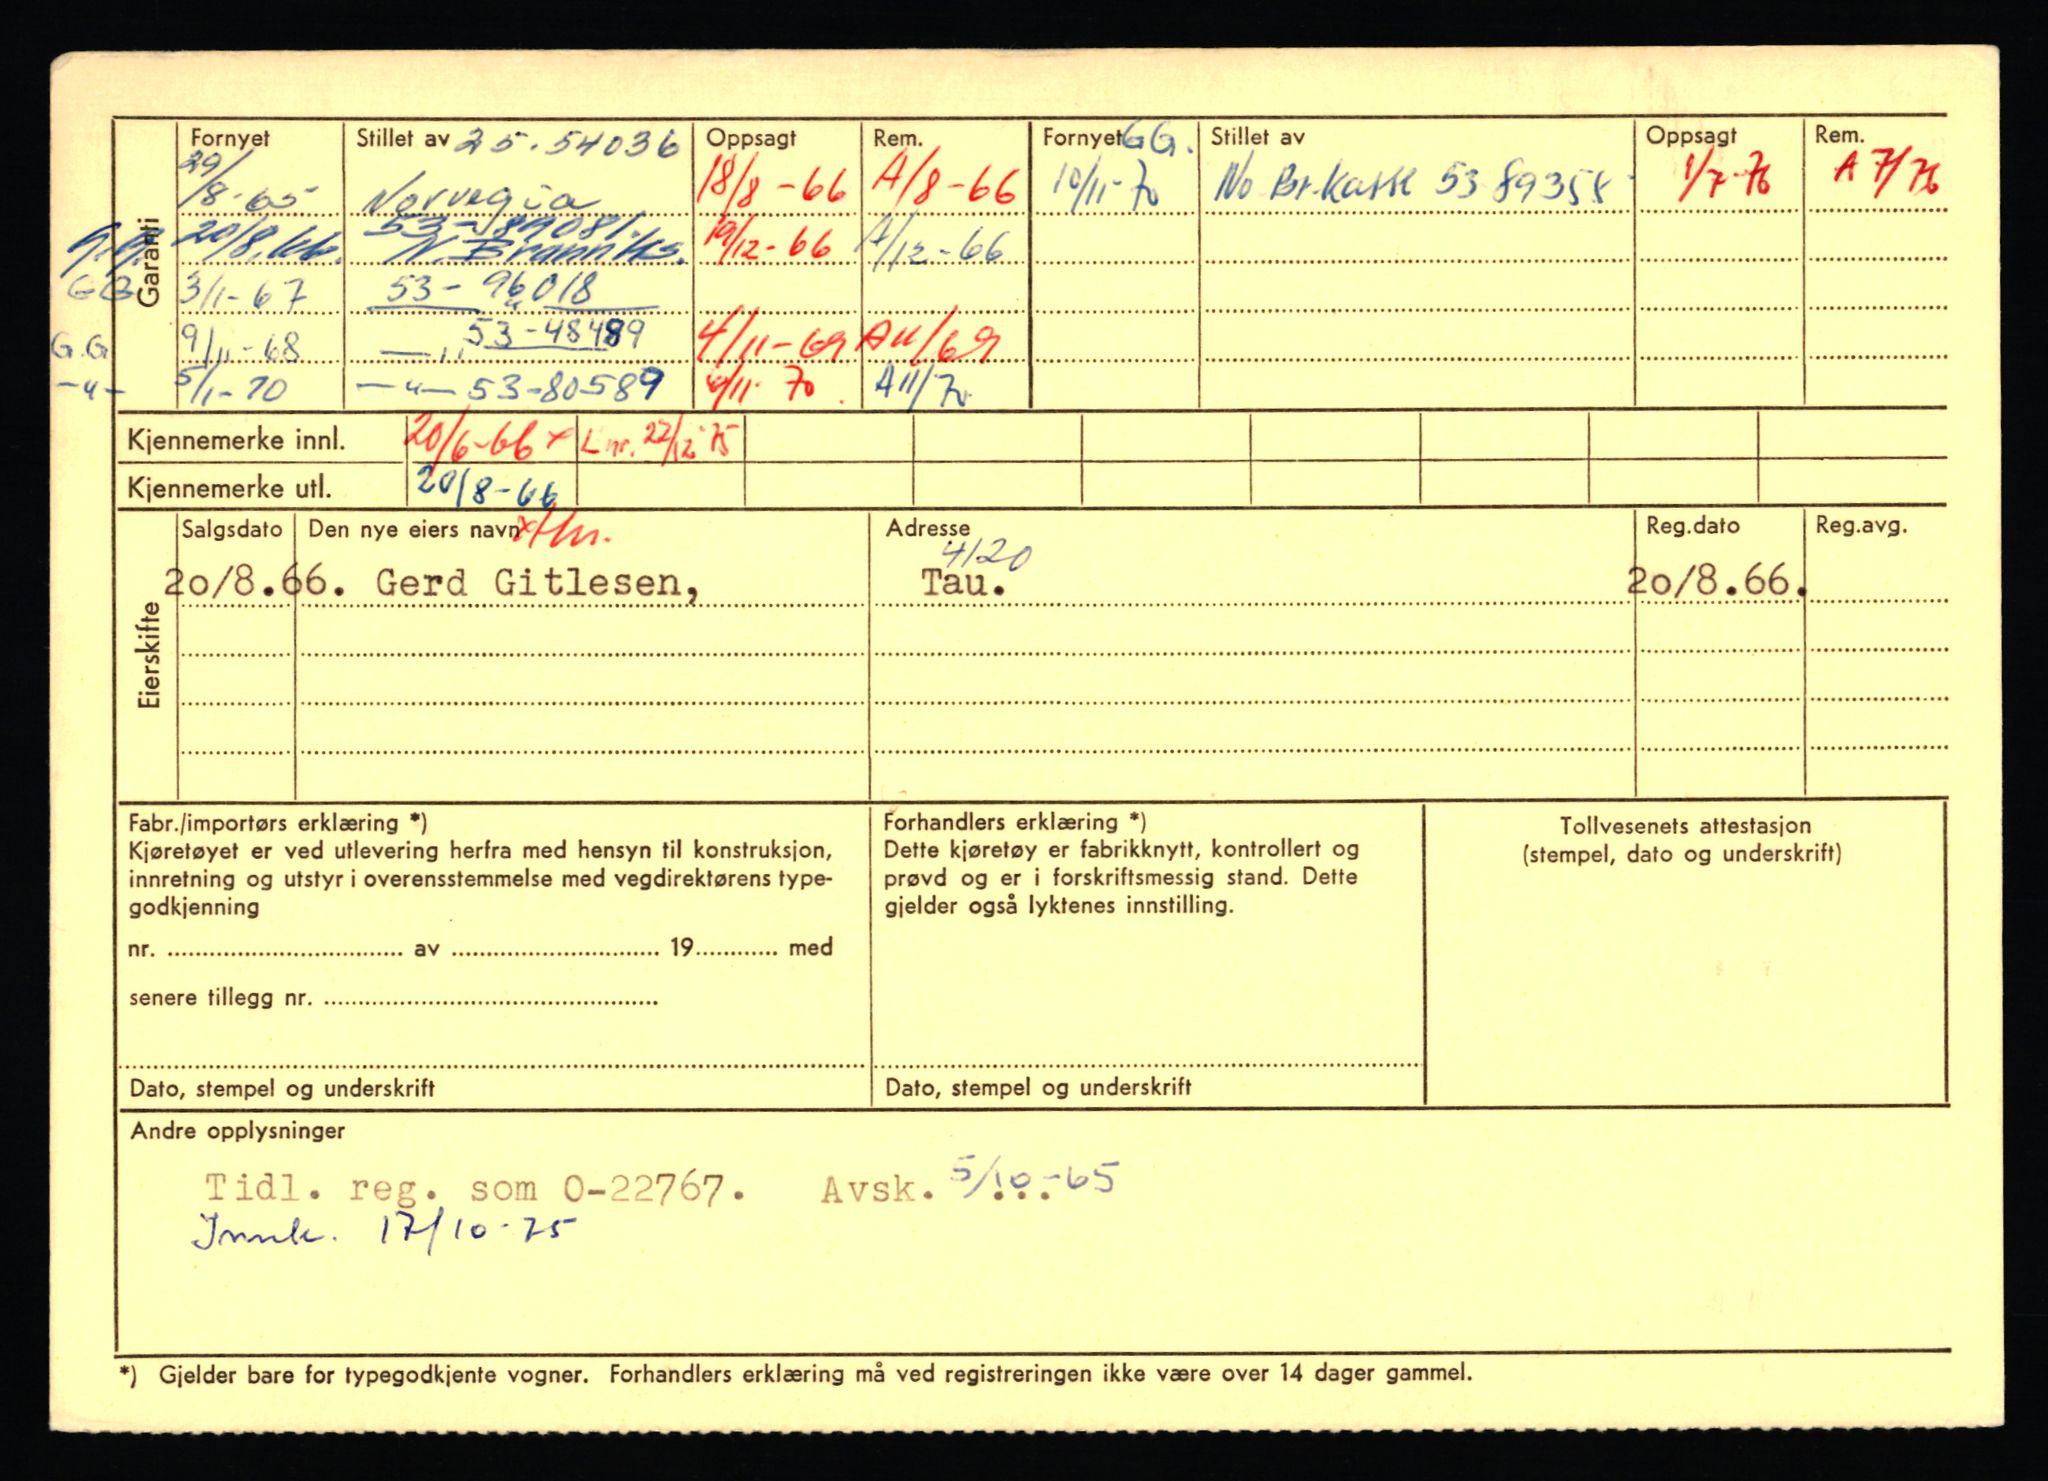 Garanti
Fornyet Stillet av 25-54036 Oppsagt Rem. Fornyet GG. Stillet av Oppsagt Rem.
29/8-65 Norvegia 18/8-66 A/8-66 10/11-70 No Br.kasse 53 89358 1/7-76 A 7/76
53-89081.
G.G. 20/8.66. N. Brannks. 19/12-66 A/12-66
GG 3/1-67 53-96018
G.G 9/11-68 —"— 53-48489 4/11-69 A11/69
-"- 5/1-70 —"— 53-80589 6/11-70. A11/70
Kjennemerke innl. 20/6-66 x Lnr. 22/12 75
Kjennemerke utl. 20/8-66
Eierskifte
Salgsdato Den nye eiers navn Adresse Reg.dato Reg.avg.
4120
2o/8.66. Gerd Gitlesen, Tau. 2o/8.66.
Fabr./importørs erklæring *)
Kjøretøyet er ved utlevering herfra med hensyn til konstruksjon,
innretning og utstyr i overensstemmelse med vegdirektørens type-
godkjenning
nr. .................... av .................... 19........ med
senere tillegg nr. ....................
Dato, stempel og underskrift
Forhandlers erklæring *)
Dette kjøretøy er fabrikknytt, kontrollert og
prøvd og er i forskriftsmessig stand. Dette
gjelder også lyktenes innstilling.
Dato, stempel og underskrift
Tollvesenets attestasjon
(stempel, dato og underskrift)
Andre opplysninger
Tidl. reg. som O-22767. Avsk. 5/10-65
Innk. 17/10-75
*) Gjelder bare for typegodkjente vogner. Forhandlers erklæring må ved registreringen ikke være over 14 dager gammel.